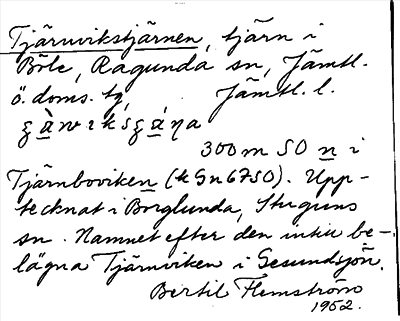 Tjärnvikstjärnen, tjärn i
Böle, Ragunda sn, Jämtl.
ö. doms. tg, Jämtl. l.
300 m SO n i
Tjärnboviken (k Gn 6750). Upp-
tecknat i Borglunda, Stuguns
sn. Namnet efter den intill be-
lägna Tjärnviken i Gesundsjön.
Bertil Flemström
1952.